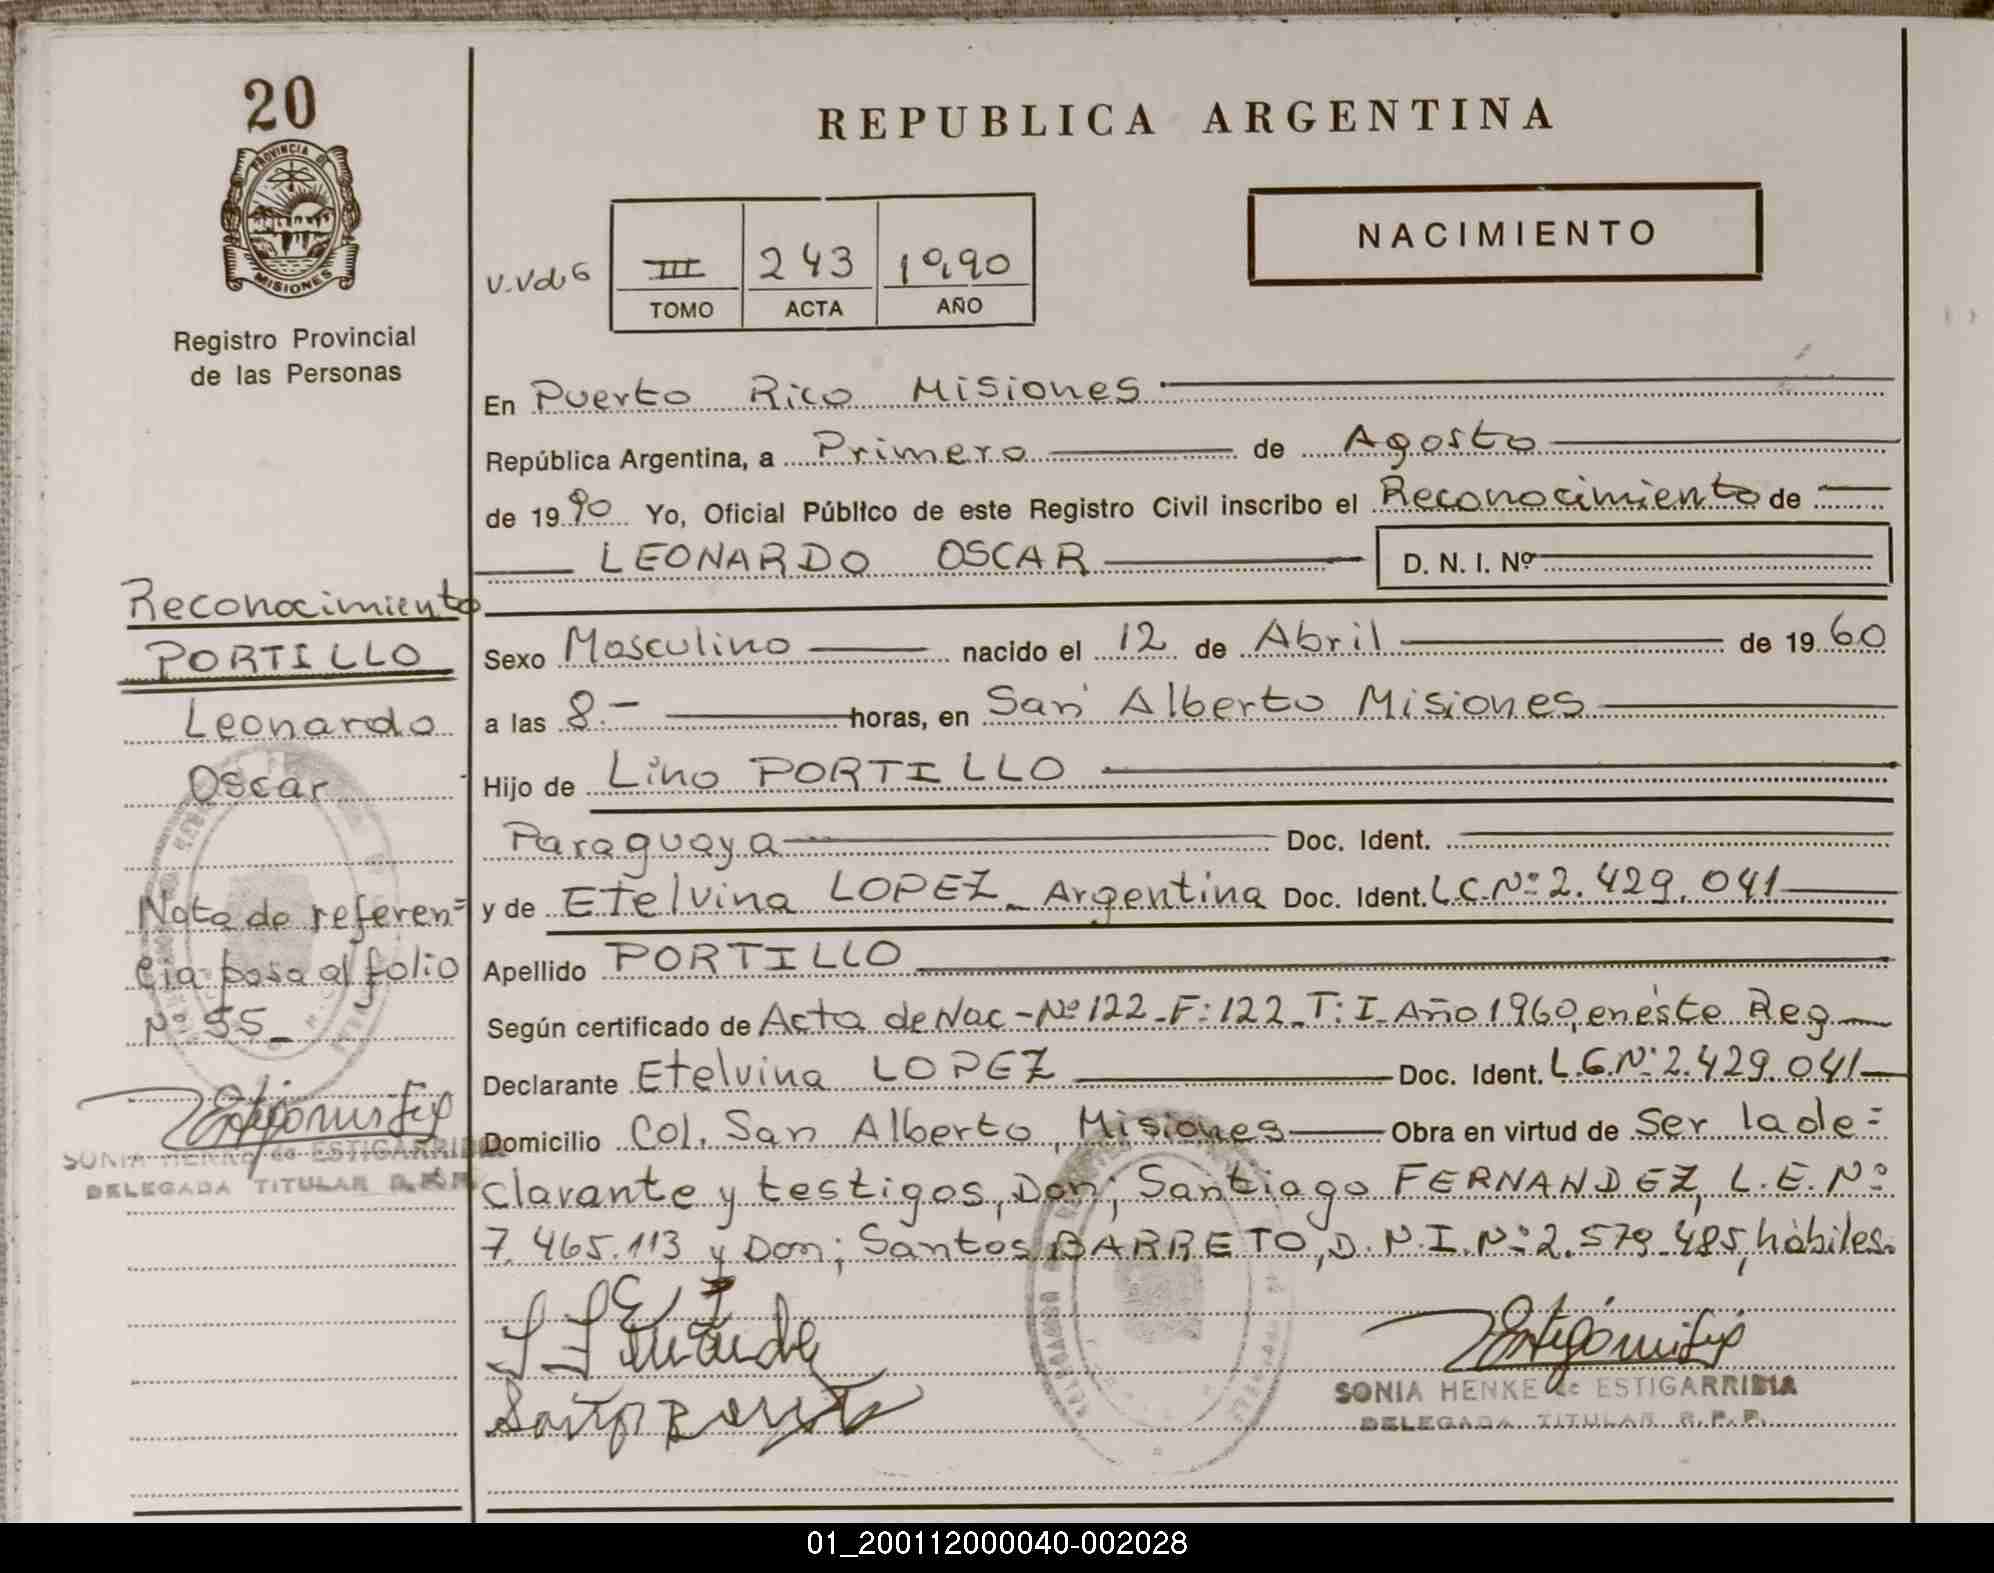 20
PROVINCIA DE
MISIONES
Registro Provincial
de las Personas
REPUBLICA ARGENTINA
NACIMIENTO
III 243 1990
TOMO ACTA AÑO
En Puerto Rico Misiones
República Argentina, a Primero de Agosto
de 1990 Yo, Oficial Público de este Registro Civil inscribo el Reconocimiento de
LEONARDO OSCAR D. N. I. Nº
Sexo Masculino nacido el 12 de Abril de 1960
a las 8.- horas, en San Alberto Misiones
Hijo de Lino PORTILLO
Paraguaya Doc. Ident.
y de Etelvina LOPEZ - Argentina Doc. Ident. L.C.Nº 2.429.041
Apellido PORTILLO
Según certificado de Acta de Nac - Nº 122 - F: 122 - T: I - Año 1960, en éste Reg
Declarante Etelvina LOPEZ Doc. Ident. L.C.Nº 2.429.041
Domicilio Col. San Alberto, Misiones Obra en virtud de Ser la de=
clarante y testigos, Don; Santiago FERNANDEZ, L.E. Nº
7.465.113 y Don; Santos BARRETO, D.N.I. Nº 2.579.485, hábiles.
SONIA HENKE de ESTIGARRIBIA
DELEGADA TITULAR R.P.P.
Reconocimiento
PORTILLO
Leonardo
Oscar
Nota de referen=
cia pasa al folio
Nº 55_
SONIA HENKE de ESTIGARRIBIA
DELEGADA TITULAR R.P.P.
01_200112000040-002028